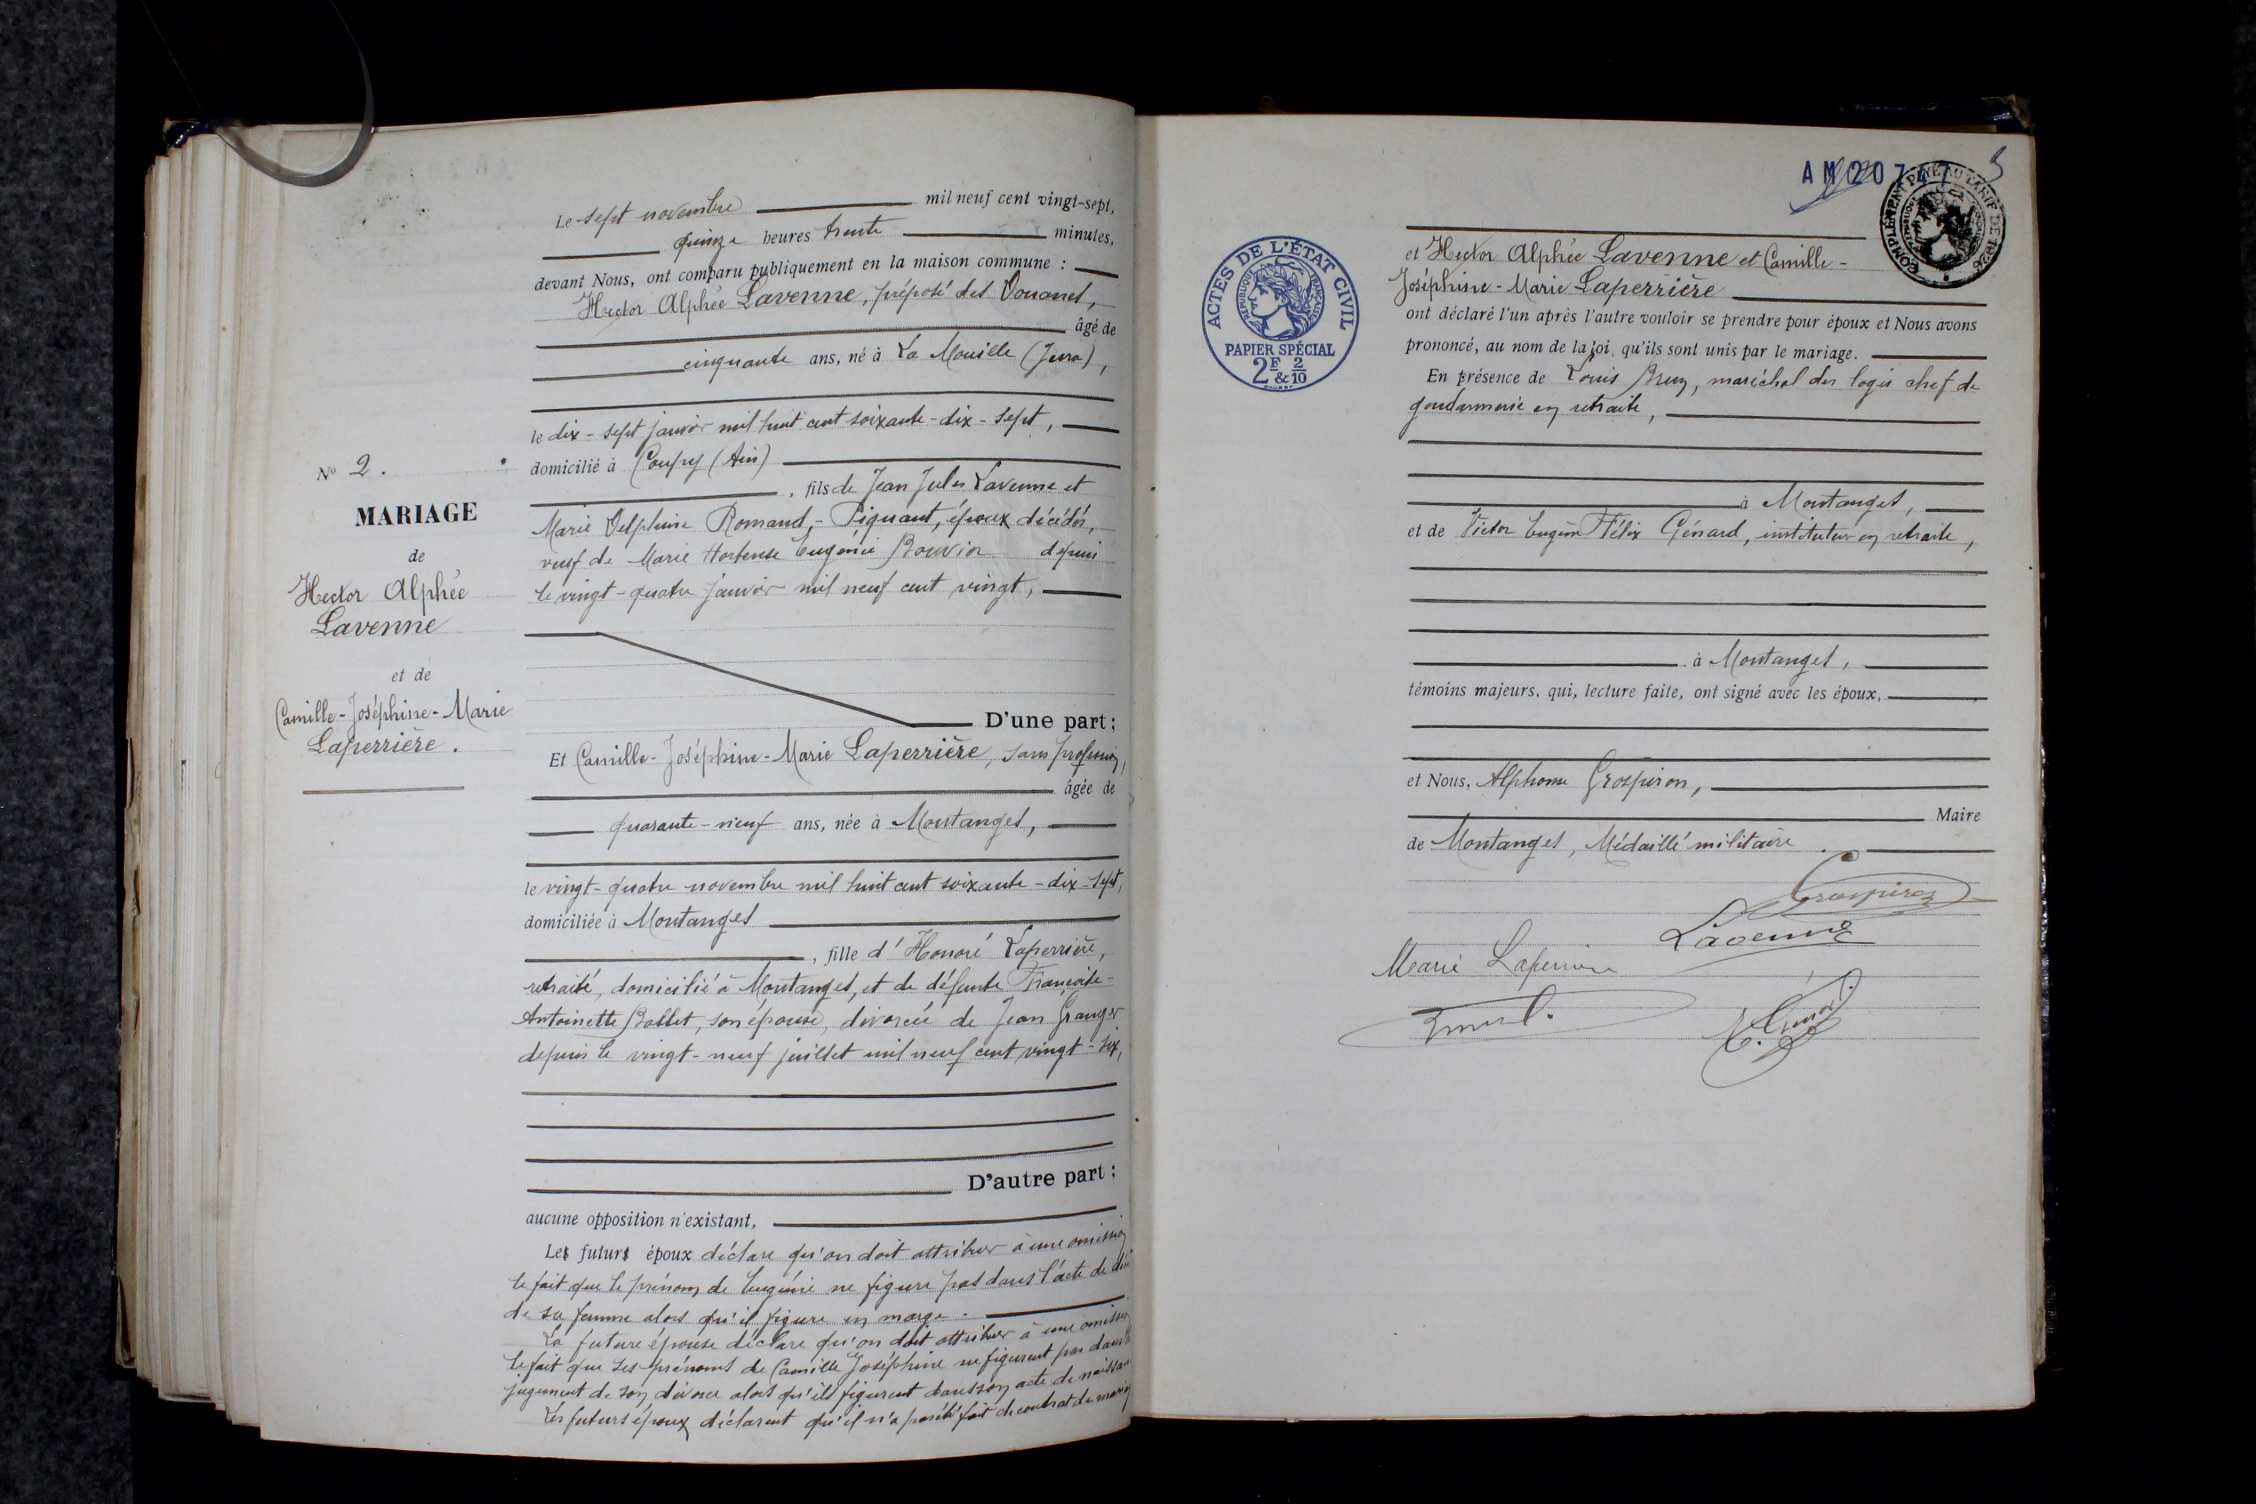 Le sept novembre mil neuf cent vingt-sept,
quinze heures trente minutes,
devant Nous, ont comparu publiquement en la maison commune :
Hector Alphée Lavenne, préposé des Douanes,
âgé de
cinquante ans, né à La Mouille (Jura),
le dix-sept janvier mil huit cent soixante-dix-sept,
No 2.
domicilié à Coupy (Ain)
, fils de Jean Jules Lavenne et
MARIAGE
Marie Delphine Romand,-Piquant, époux décédés,
de
veuf de Marie Hortense Eugénie Bouvier depuis
Hector Alphée
le vingt-quatre janvier mil neuf cent vingt,
Lavenne
et de
Camille-Joséphine-Marie
D'une part ;
Laperrière.
Et Camille-Joséphine-Marie Laperrière, sans profession,
âgée de
quarante-neuf ans, née à Montanges,
le vingt-quatre novembre mil huit cent soixante-dix-sept,
domiciliée à Montanges
, fille d'Honoré Laperrière,
retraité, domicilié à Montanges, et de défunte Françoise-
Antoinette Ballet, son épouse, divorcée de Jean Granger
depuis le vingt-neuf juillet mil neuf cent vingt-six,
D'autre part ;
aucune opposition n'existant,
Les futurs époux déclare qu'on doit attribuer à une omission
le fait que le prénom de Eugénie ne figure pas dans l'acte de
de sa femme alors qu'il figure en marge.
La future épouse déclare qu'on doit attribuer à une omission
le fait que ses prénoms de Camille Joséphine ne figurent pas dans le
jugement de son divorce alors qu'ils figurent dans son acte de naissance
Les futurs époux déclarent qu'il n'a pas été fait de contrat de mariage
3
COMPLÉMENT PAYÉ AU TARIF DE 1926
ACTES DE L'ÉTAT CIVIL
RÉPUBLIQUE FRANÇAISE
PAPIER SPÉCIAL
2F & 2/10
et Hector Alphée Lavenne et Camille-
Joséphine-Marie Laperrière
ont déclaré l'un après l'autre vouloir se prendre pour époux et Nous avons
prononcé, au nom de la loi, qu'ils sont unis par le mariage.
En présence de Louis Brun, maréchal des logis chef de
gendarmerie en retraite,
à Montanges,
et de Victor Eugène Félix Génard, instituteur en retraite,
à Montanges,
témoins majeurs, qui, lecture faite, ont signé avec les époux,
et Nous, Alphonse Grospiron,
Maire
de Montanges, Médaillé militaire.
Grospiron
Lavenne
Marie Laperrière